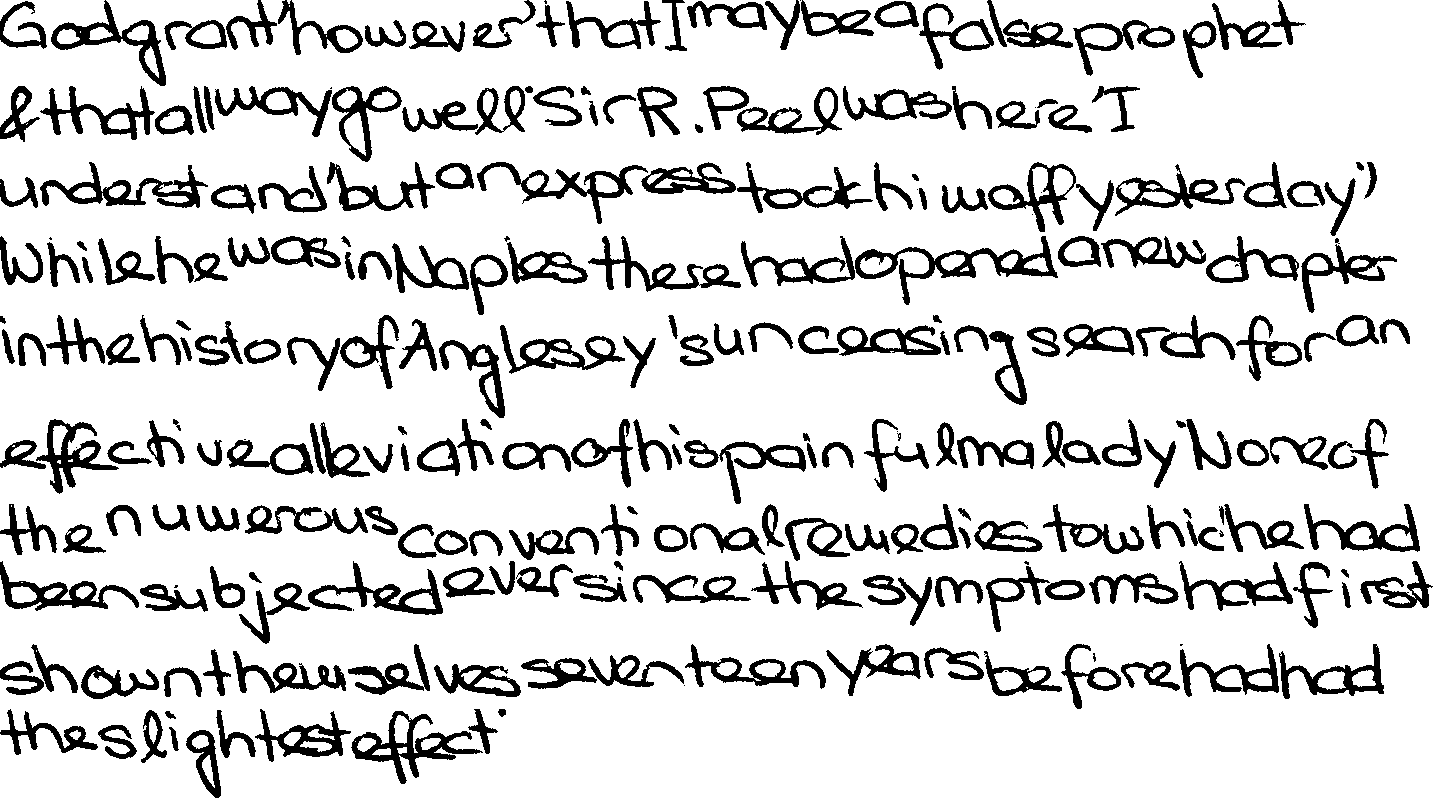 God grant' however' that I may be a false prophet
& that all way go well 'Sir R. Peel was here 'I
understand 'but an express took hiw off yesterday')
While he was in Naples there had opened a new chapter
in the history of Anglesey 's unceasing search for an
effective alleviation of his painful malady 'None of
the numerous conventional remedies to which he had
been subjected ever since the symptoms had first
shown themselves seventeen years before had had
the slightest effect.